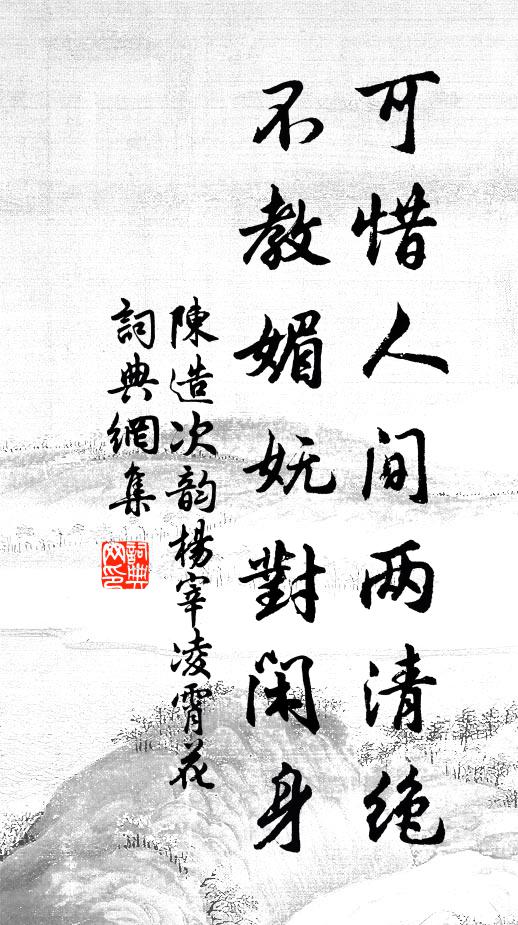 可惜人间两清绝
不教媚妩對闲身
陳造次韵楊宰凌霄花
詞典網集
詞典网印